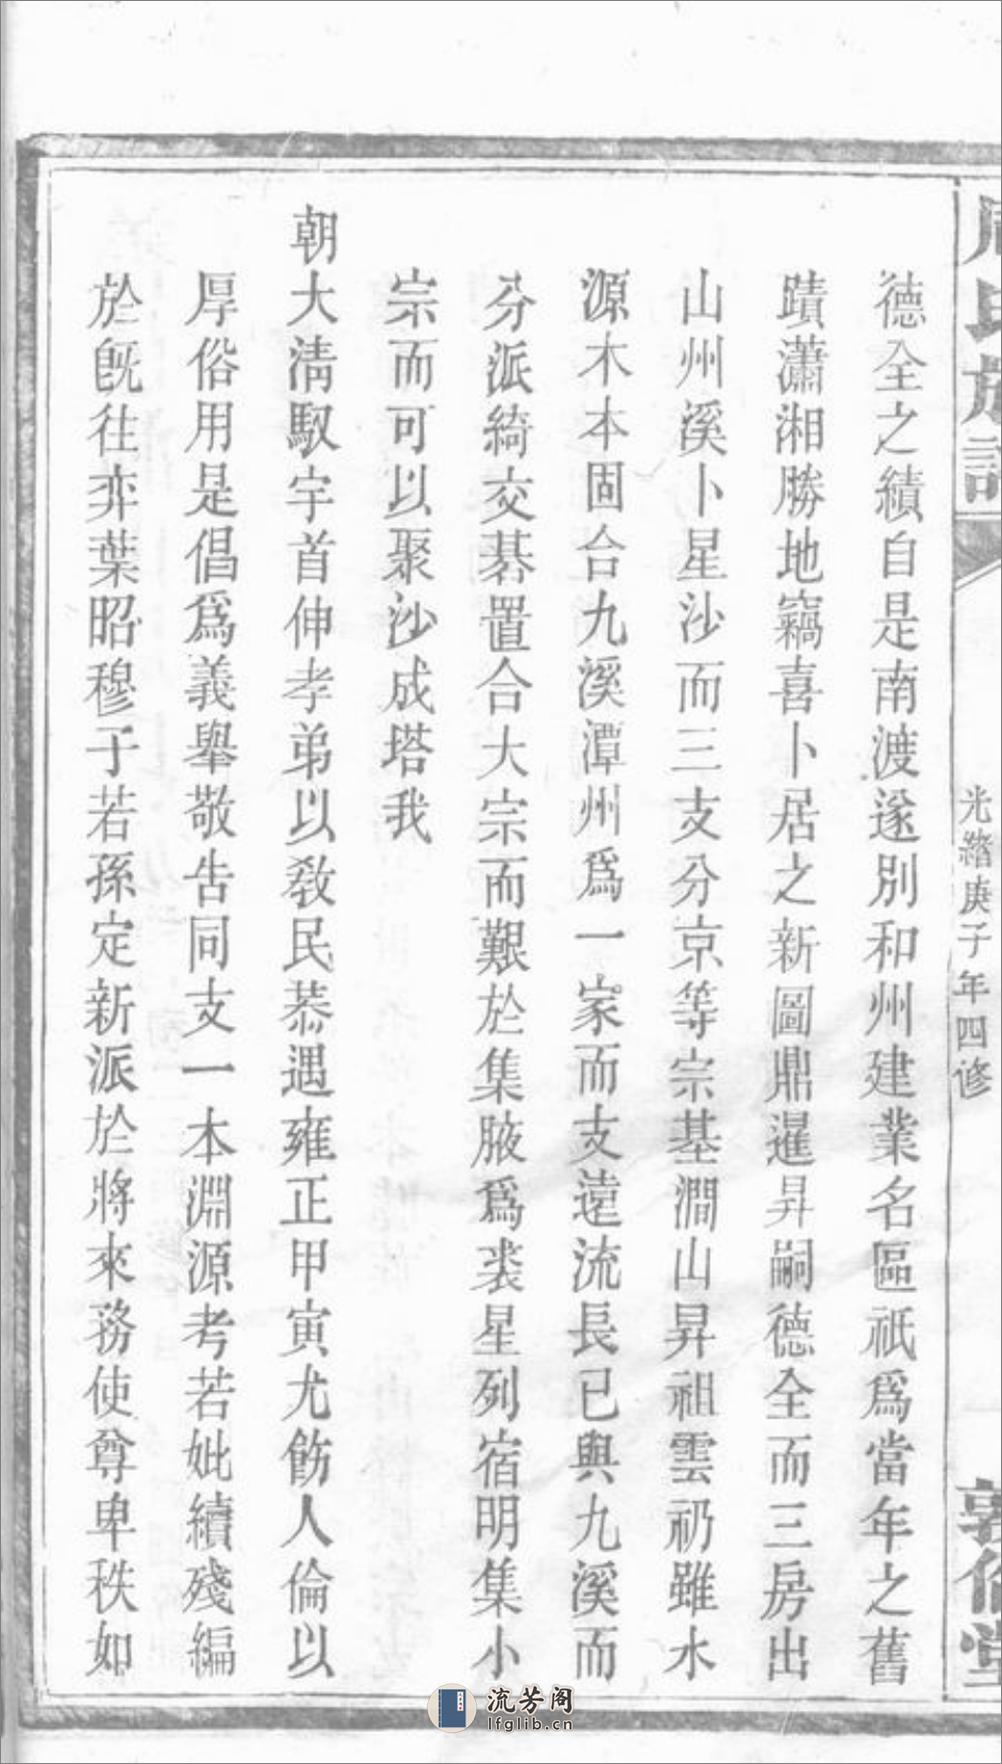 周氏族譜
光緒庚子年四修
敦倫堂
德全之績自是南渡遂別和州建業名區祇爲當年之舊
蹟瀟湘勝地竊喜卜居之新圖鼎暹昇嗣德全而三房出
山州溪卜星沙而三支分京等宗基澗山昇祖雲礽雖水
源木本固合九溪潭州爲一家而支遠流長已與九溪而
分派綺交碁置合大宗而艱於集腋爲裘星列宿明集小
宗而可以聚沙成塔我
朝大淸馭宇首伸孝弟以敎民恭遇雍正甲寅尤飭人倫以
厚俗用是倡爲義舉敬告同支一本淵源考若妣續殘編
於旣往弈葉昭穆子若孫定新派於將來務使尊卑秩如
流芳阁
lfglib.cn